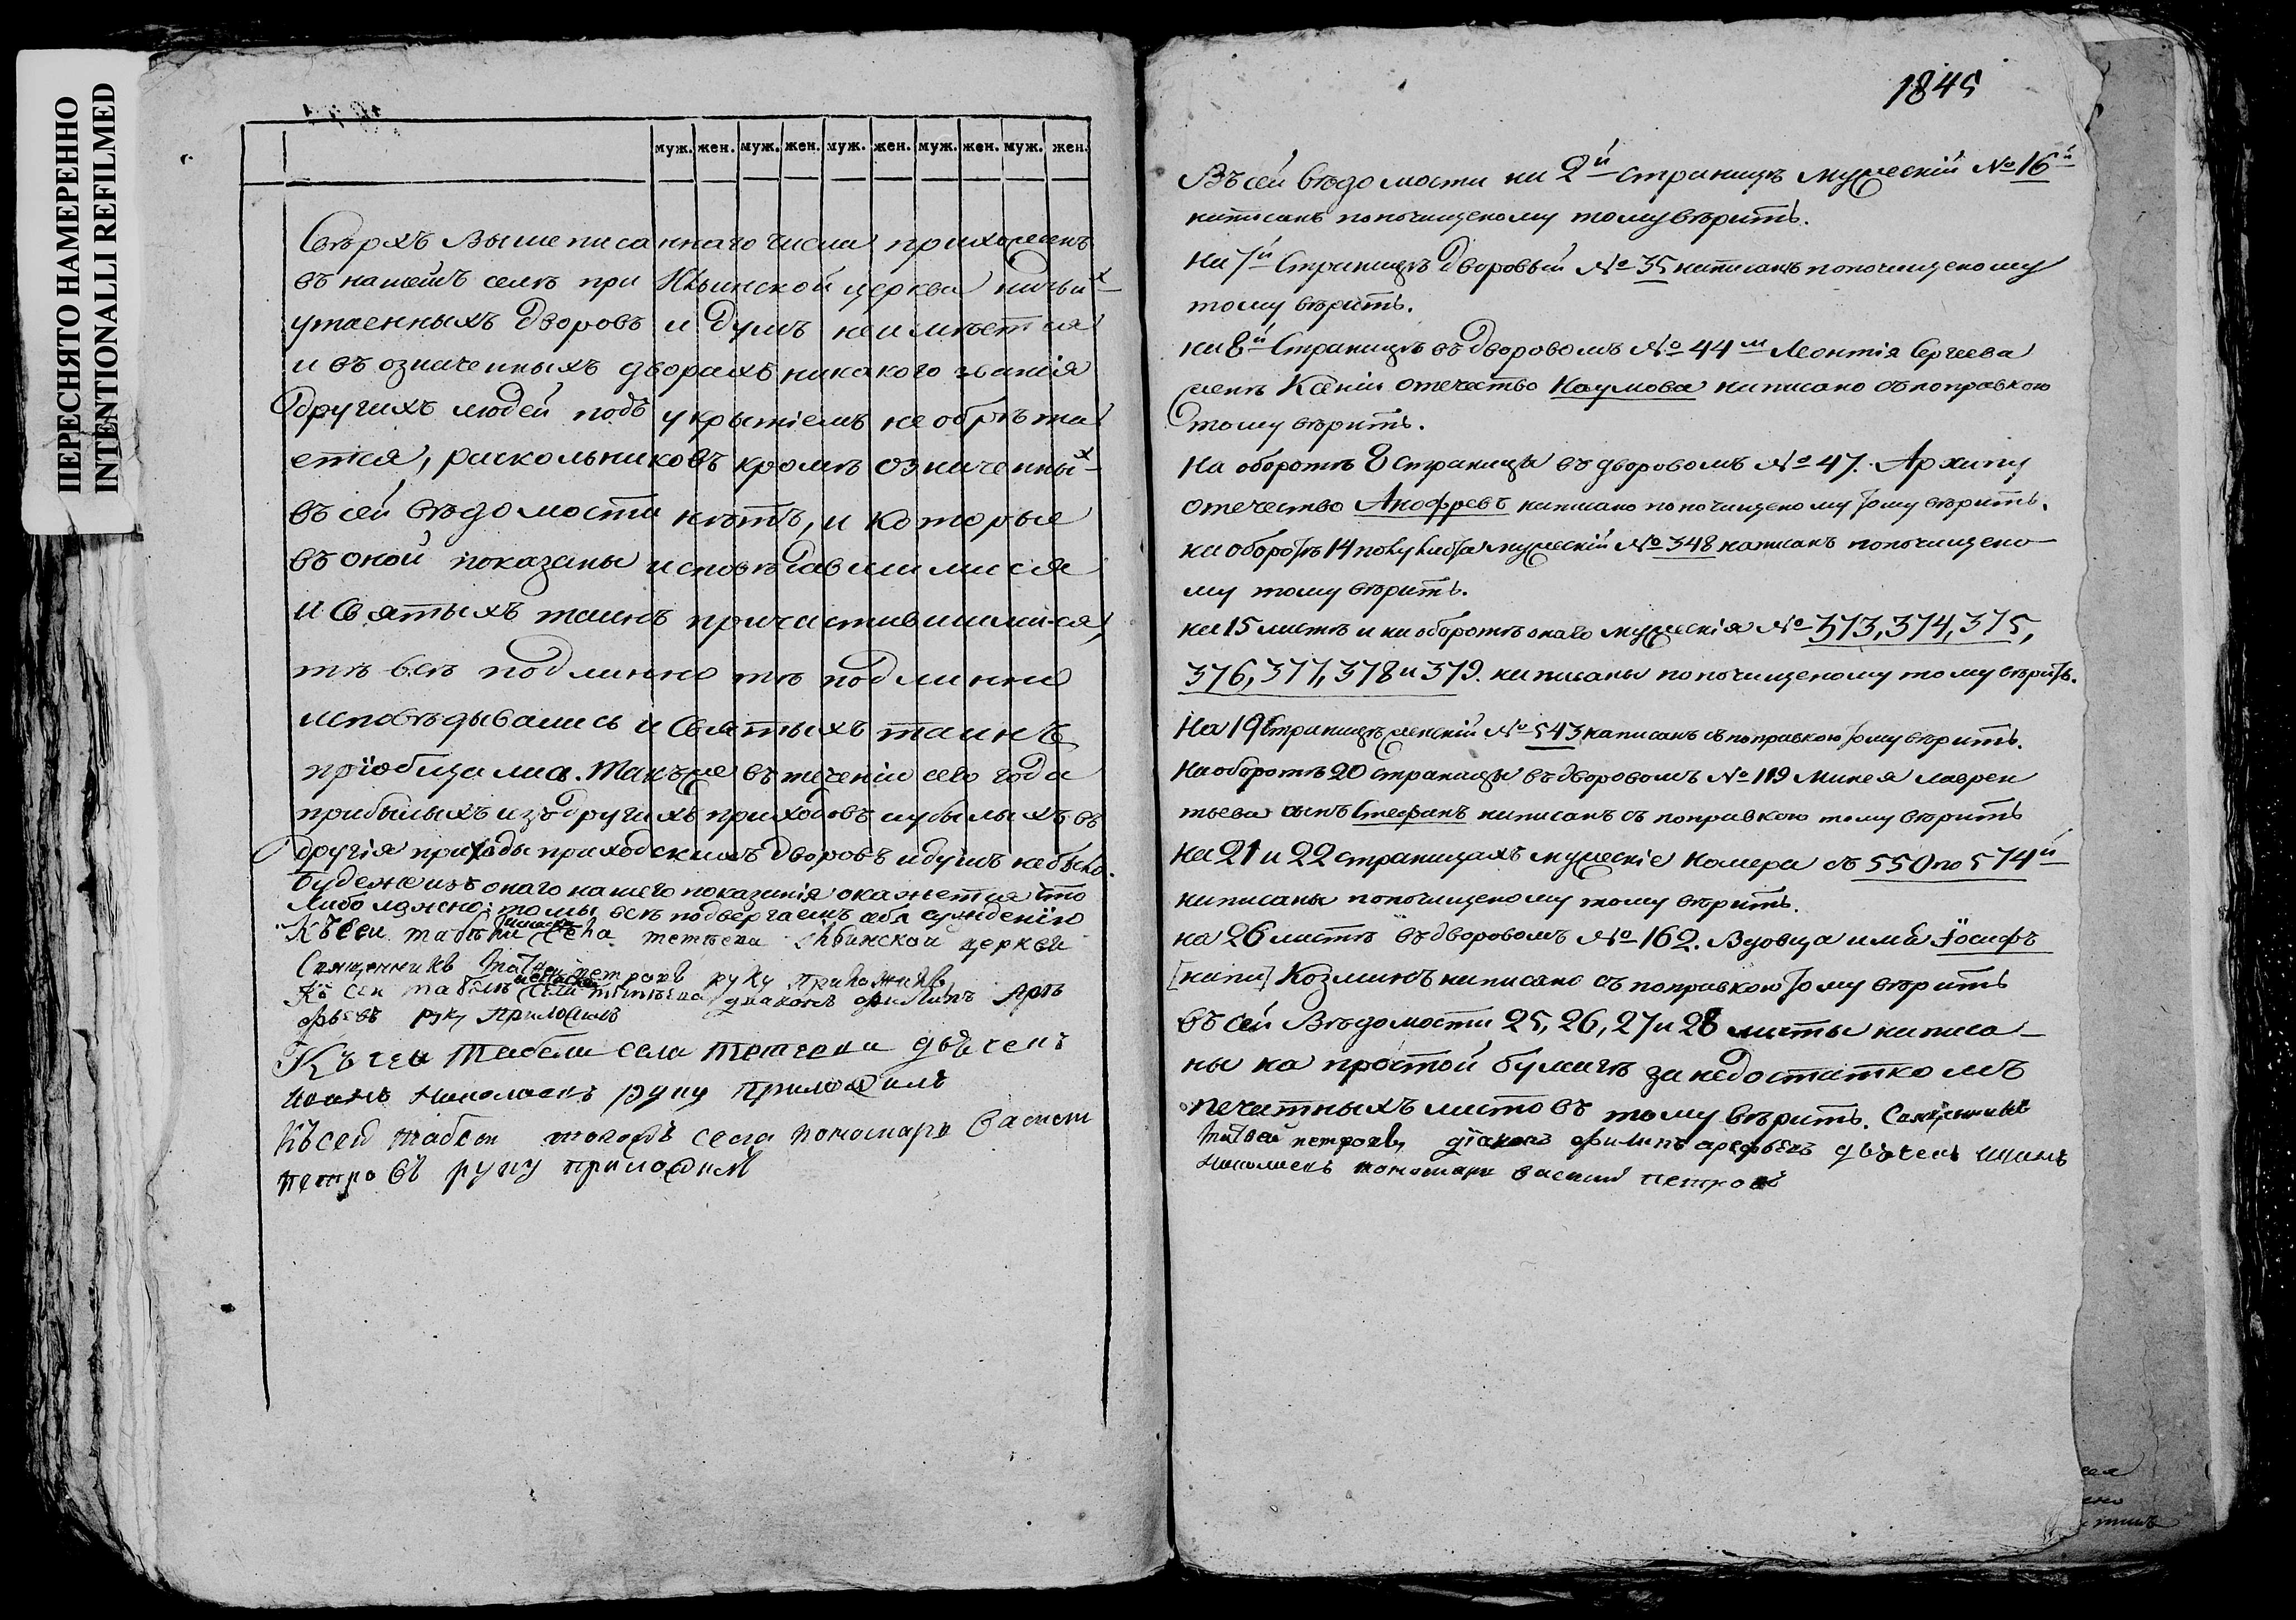 ПЕРЕСНЯТО НАМЕРЕННО
INTENTIONALLI REFILMED
муж. жен. муж. жен. муж. жен. муж. жен. муж. жен.
Сверхъ вышеписаннаго числа прихожанъ
въ нашемъ селѣ при Ильинской церкви ничьи х
утаенныхъ дворовъ и душъ неимѣется
и въ означенныхъ дворахъ никакого званія
другихъ людей подъ укрытіемъ не обрѣта
ется, раскольниковъ кромѣ означенны х
въ сей вѣдомости нѣтъ, и которые
въ оной показаны исповѣдавшимися
и Святыхъ таинъ причастившимися,
тѣ всѣ подлинно тѣ подлинно
исповѣдывались и Святыхъ таинъ
пріобщались. Также въ теченіи сего года
прибылыхъ изъ другихъ приходовъ и убылыхъ въ
другія приходы приходскихъ дворовъ и душъ небыло.
Будеже изъ онаго нашего показанія окажется что
либо ложно; то мы всѣ подвергаемъ себя сужденію
Къ сей табели села тетеева ильинской церкви
Священникъ матвей петровъ руку приложилъ
Къ сей табелѣ села диаконъ филипъ Аре
фьевъ руку приложилъ
Къ сей табели села тетеева дьячекъ
иванъ николаевъ руку приложилъ
Къ сей табели тогожъ села пономарь Василей
петровъ руку приложилъ
1845
Въ сей вѣдомости на 2й страницѣ мужескій № 16й
написанъ попочищеному тому вѣрить.
на 7й Страницѣ дворовый № 35 написанъ попочищеному
тому вѣрить.
на 8й Страницѣ въ дворовомъ № 44м Леонтія Сергеева
женѣ Ксеніи отечество Наумова написано съ поправкою
тому вѣрить.
На оборотѣ 8 страницы въ дворовомъ № 47. Архипу
отечество Анофревъ написано попочищеному тому вѣрить.
на оборотѣ 14 полулиста мужескій № 348 написанъ попочищено
му тому вѣрить.
на 15 листѣ и на оборотѣ онаго мужескія № 373, 374, 375,
376, 377, 378 и 379. написаны попочищеному тому вѣрить.
На 19 Страницѣ женскій № 543 написанъ съ поправкою тому вѣрить.
На оборотѣ 20 страницы въ дворовомъ № 119 Минея лаврен
тьева сынъ Стефанъ написанъ съ поправкою тому вѣрить
На 21 и 22 страницахъ мужескіе номера съ 550 по 574й
написаны попочищеному тому вѣрить.
на 26 листѣ въ дворовомъ № 162. Вдовца имя Іосифъ
[напи] Козминъ написано съ поправкою тому вѣрить
въ сей Вѣдомости 25, 26, 27 и 28 листы написа-
ны на простой бумагѣ за недостаткомъ
печатныхъ листовъ тому вѣрить. Священникъ
матвей петровъ, діаконъ филипъ арефьевъ дьячекъ иванъ
николаевъ пономарь василий петровъ